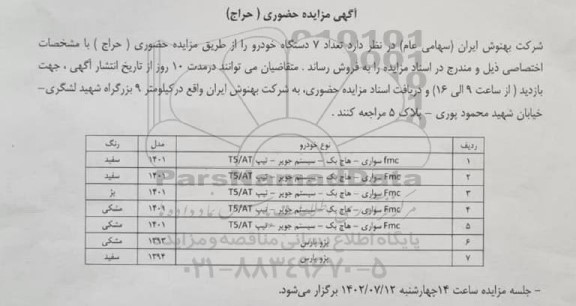 آگهی مزایده حضوری ( حراج)
شرکت بهنوش ایران (سهامی عام) در نظر دارد تعداد ۷ دستگاه خودرو را از طریق مزایده حضوری ( حراج ) با مشخصات
اختصاصی ذیل و مندرج در اسناد مزایده را به فروش رساند . متقاضیان می توانند درمدت ۱۰ روز از تاریخ انتشار آگهی ، جهت
بازدید ( از ساعت ۹ الی ۱۶) و دریافت اسناد مزایده حضوری، به شرکت بهنوش ایران واقع درکیلومتر ۹ بزرگراه شهید لشگری–
خیابان شهید محمود پوری – پلاک ۵ مراجعه کنند .
ردیف نوع خودرو مدل رنگ
۱ fmc سواری – هاچ بک – سیستم جویر – تیپ T5/AT ۱۴۰۱ سفید
۲ Fmc سواری – هاچ بک – سیستم جویر – تیپ T5/AT ۱۴۰۱ سفید
۳ Fmc سواری – هاچ بک – سیستم جویر – تیپ T5/AT ۱۴۰۱ بژ
۴ Fmc سواری – هاچ بک – سیستم جویر – تیپ T5/AT ۱۴۰۱ مشکی
۵ Fmc سواری – هاچ بک – سیستم جویر – تیپ T5/AT ۱۴۰۱ مشکی
۶ پژو پارس ۱۳۹۳ مشکی
۷ پژو پارس ۱۳۹۴ سفید
– جلسه مزایده ساعت ۱۴چهارشنبه ۱۴۰۲/۰۷/۱۲ برگزار می‌شود.
ParsNamadData
پایگاه اطلاع رسانی مناقصه و مزایده
۰۲۱-۸۸۳۴۹۶۷۰-۵